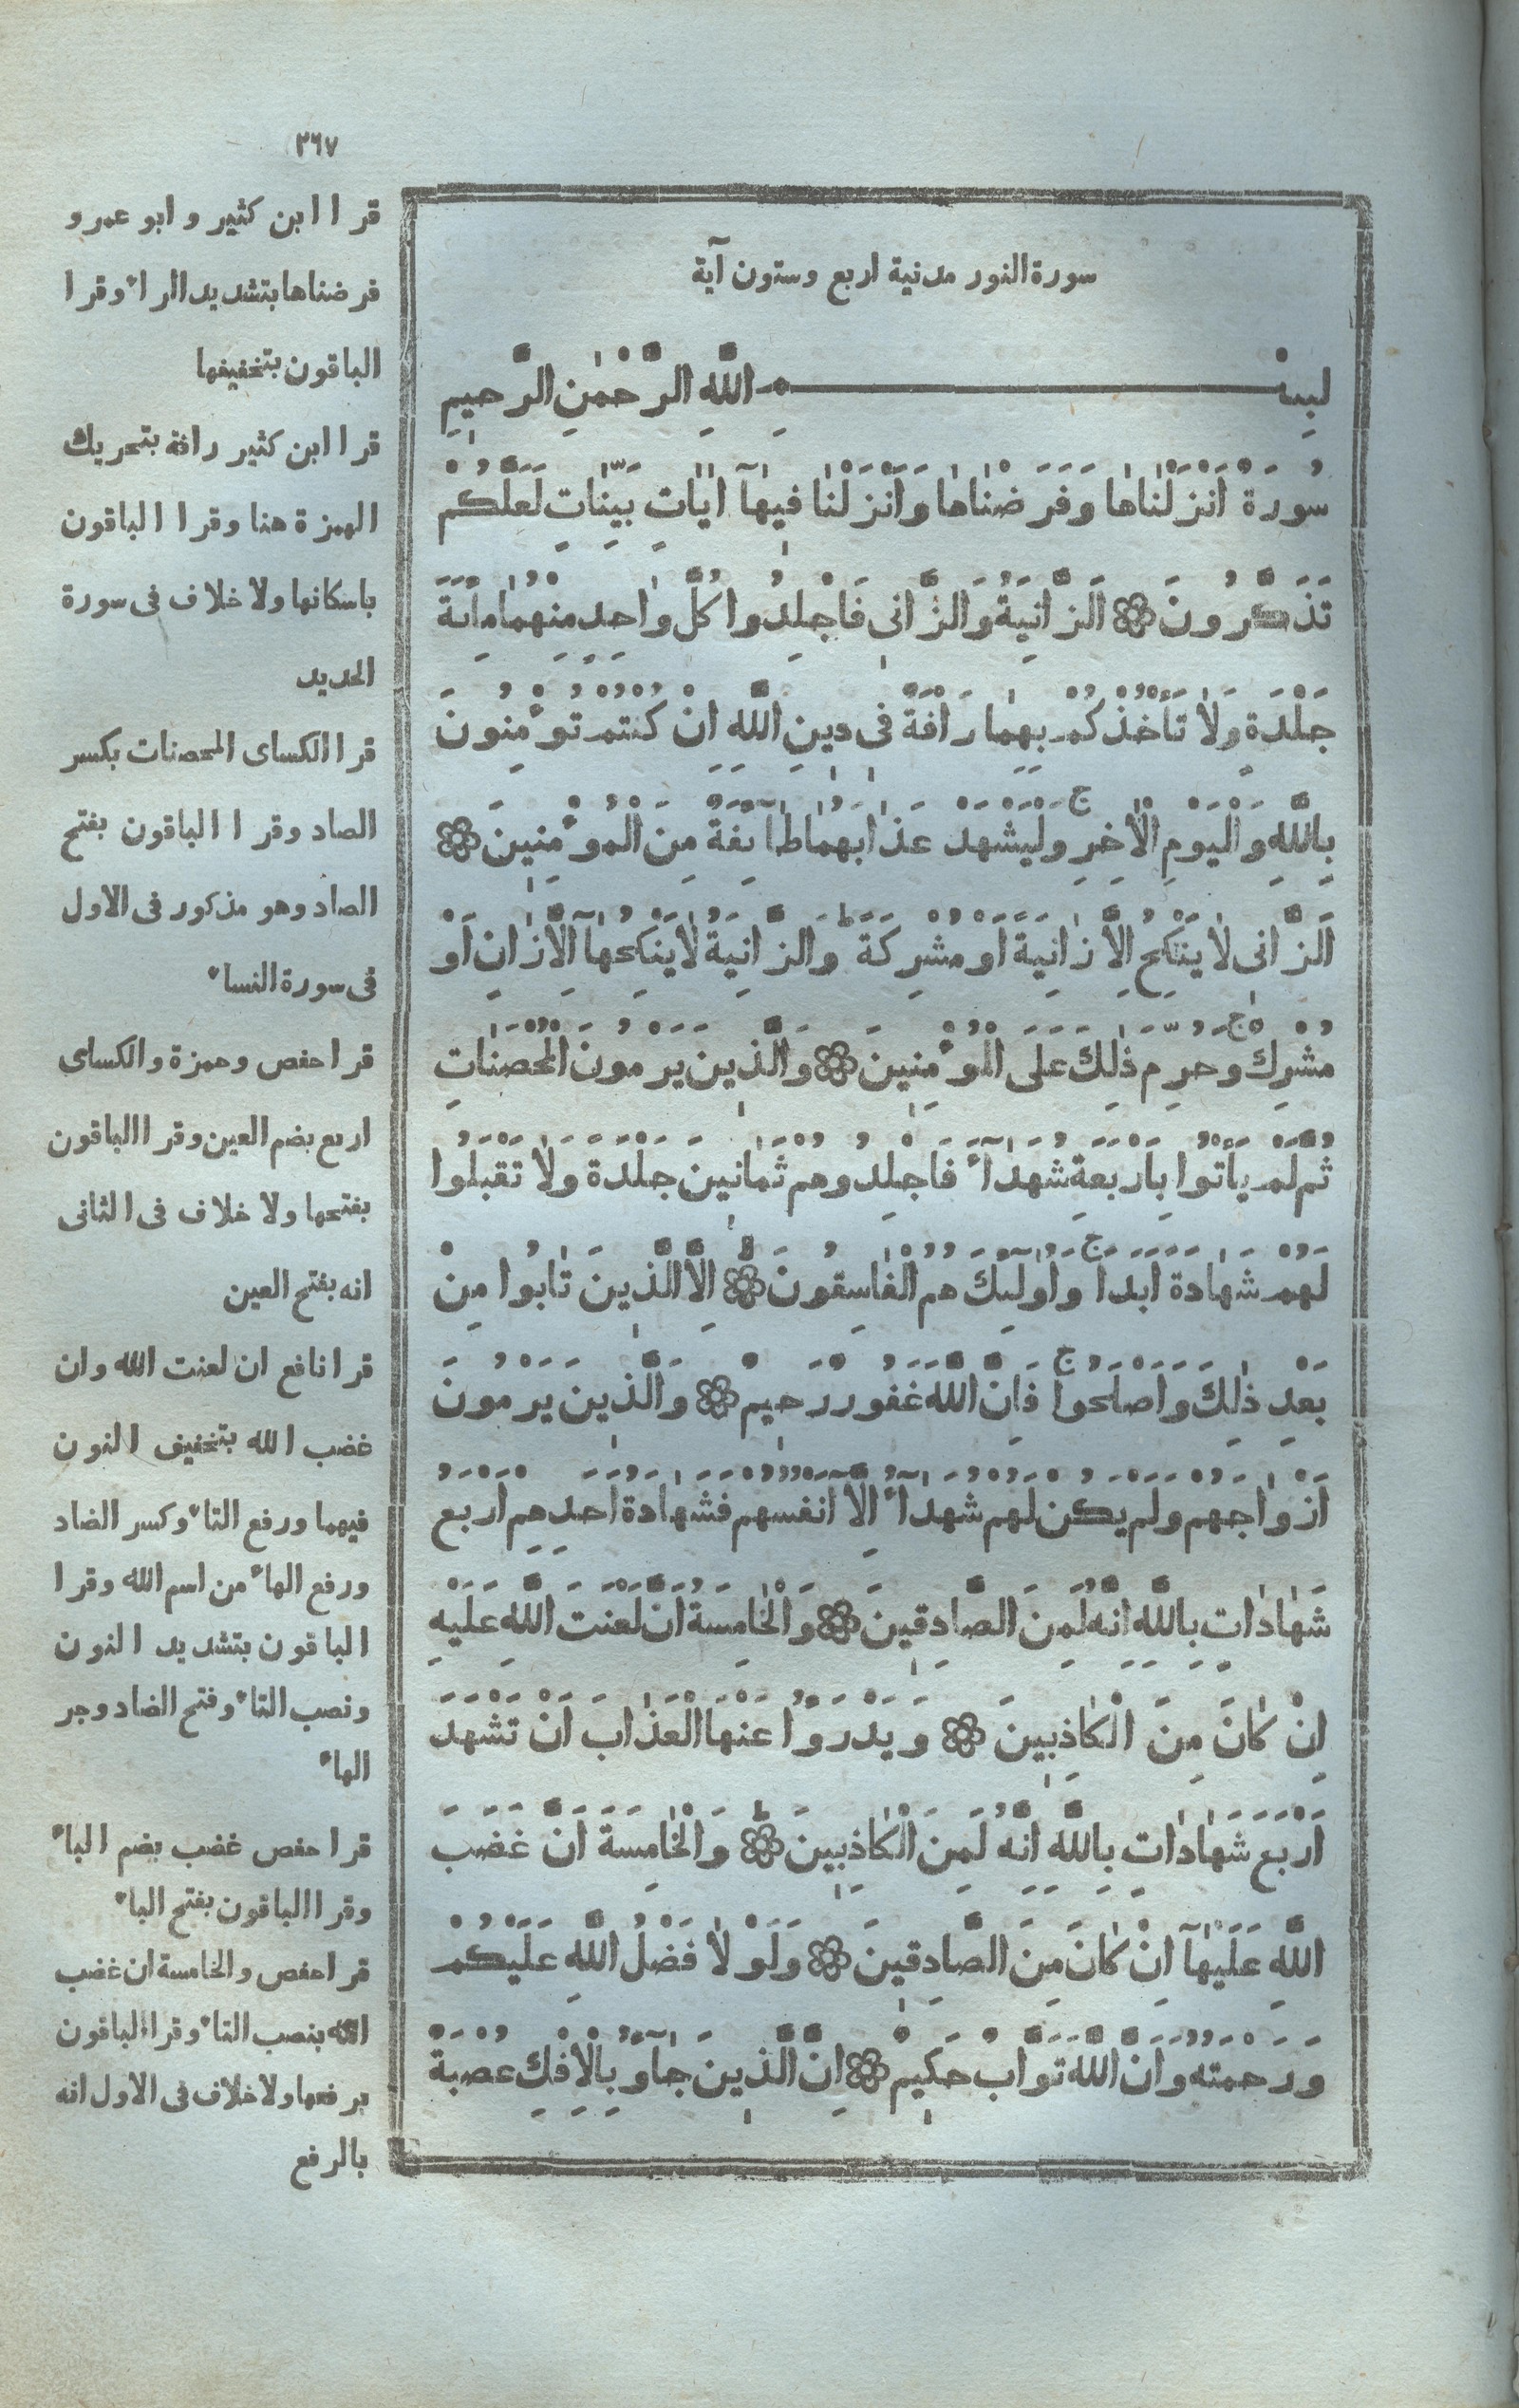 ٣٦٧
سورة النور مدنية اربع وستون آية
بِسْمِ اللَّهِ الرَّحْمٰنِ الرَّحٖيمِ
سُورَةٌ اَنْزَلْنٰاهٰا وَفَرَضْنٰاهٰا وَاَنْزَلْنٰا فٖيهٰآ اٰيٰاتٍ بَيِّنٰاتٍ لَعَلَّكُمْ
تَذَكَّرُونَ ۞ اَلزَّانِيَةُ وَالزَّانٖى فَاجْلِدُوا كُلَّ وٰاحِدٍ مِنْهُمٰا مِائَةَ
جَلْدَةٍ وَلٰا تَأْخُذْكُمْ بِهِمٰا رَاْفَةٌ فٖى دٖينِ اللَّهِ اِنْ كُنْتُمْ تُؤْمِنُونَ
بِاللَّهِ وَالْيَوْمِ الْاٰخِرِ ج وَلْيَشْهَدْ عَذٰابَهُمٰا طٰآئِفَةٌ مِنَ الْمُؤْمِنٖينَ ۞
اَلزَّانٖى لٰا يَنْكِحُ اِلَّا زٰانِيَةً اَوْ مُشْرِكَةً ط وَالزَّانِيَةُ لٰا يَنْكِحُهٰآ اِلَّا زٰانٍ اَوْ
مُشْرِكٌ ج وَحُرِّمَ ذٰلِكَ عَلَى الْمُؤْمِنٖينَ ۞ وَالَّذٖينَ يَرْمُونَ الْمُحْصَنٰاتِ
ثُمَّ لَمْ يَأْتُوا بِاَرْبَعَةِ شُهَدٰآءَ فَاجْلِدُوهُمْ ثَمٰانٖينَ جَلْدَةً وَلٰا تَقْبَلُوا
لَهُمْ شَهٰادَةً اَبَدًا ج وَاُولٰٓئِكَ هُمُ الْفٰاسِقُونَ ۞ اِلَّا الَّذٖينَ تٰابُوا مِنْ
بَعْدِ ذٰلِكَ وَاَصْلَحُوا ج فَاِنَّ اللَّهَ غَفُورٌ رَحٖيمٌ ۞ وَالَّذٖينَ يَرْمُونَ
اَزْوٰاجَهُمْ وَلَمْ يَكُنْ لَهُمْ شُهَدٰآءُ اِلَّآ اَنْفُسُهُمْ فَشَهٰادَةُ اَحَدِهِمْ اَرْبَعُ
شَهٰادٰاتٍ بِاللَّهِ اِنَّهُ لَمِنَ الصَّادِقٖينَ ۞ وَالْخٰامِسَةُ اَنَّ لَعْنَتَ اللَّهِ عَلَيْهِ
اِنْ كٰانَ مِنَ الْكٰاذِبٖينَ ۞ وَيَدْرَؤُا عَنْهَا الْعَذٰابَ اَنْ تَشْهَدَ
اَرْبَعَ شَهٰادٰاتٍ بِاللَّهِ اِنَّهُ لَمِنَ الْكٰاذِبٖينَ ۞ وَالْخٰامِسَةَ اَنَّ غَضَبَ
اللَّهِ عَلَيْهٰآ اِنْ كٰانَ مِنَ الصَّادِقٖينَ ۞ وَلَوْلٰا فَضْلُ اللَّهِ عَلَيْكُمْ
وَرَحْمَتُهُ وَاَنَّ اللَّهَ تَوَّابٌ حَكٖيمٌ ۞ اِنَّ الَّذٖينَ جٰآؤُ بِالْاِفْكِ عُصْبَةٌ
قرا ابن كثير وابو عمرو
فرضناها بتشديد الراء وقرا
الباقون بتخفيفها
قرا ابن كثير رافة بتحريك
الهمزة هنا وقرا الباقون
باسكانها ولا خلاف فى سورة
الحديد
قرا الكساى المحصنات بكسر
الصاد وقرا الباقون بفتح
الصاد وهو مذكور فى الاول
فى سورة النساء
قرا حفص وحمزة والكساى
اربع بضم العين وقرا الباقون
بفتحها ولا خلاف فى الثانى
انه بفتح العين
قرا نافع ان لعنت الله وان
غضب الله بتخفيف النون
فيهما ورفع التاء وكسر الضاد
ورفع الهاء من اسم الله وقرا
الباقون بتشديد النون
ونصب التاء وفتح الضاد وجر
الهاء
قرا حفص غضب بضم الباء
وقرا الباقون بفتح الباء
قرا حفص والخامسة ان غضب
الله بنصب التاء وقرا الباقون
برفعها ولا خلاف فى الاول انه
بالرفع